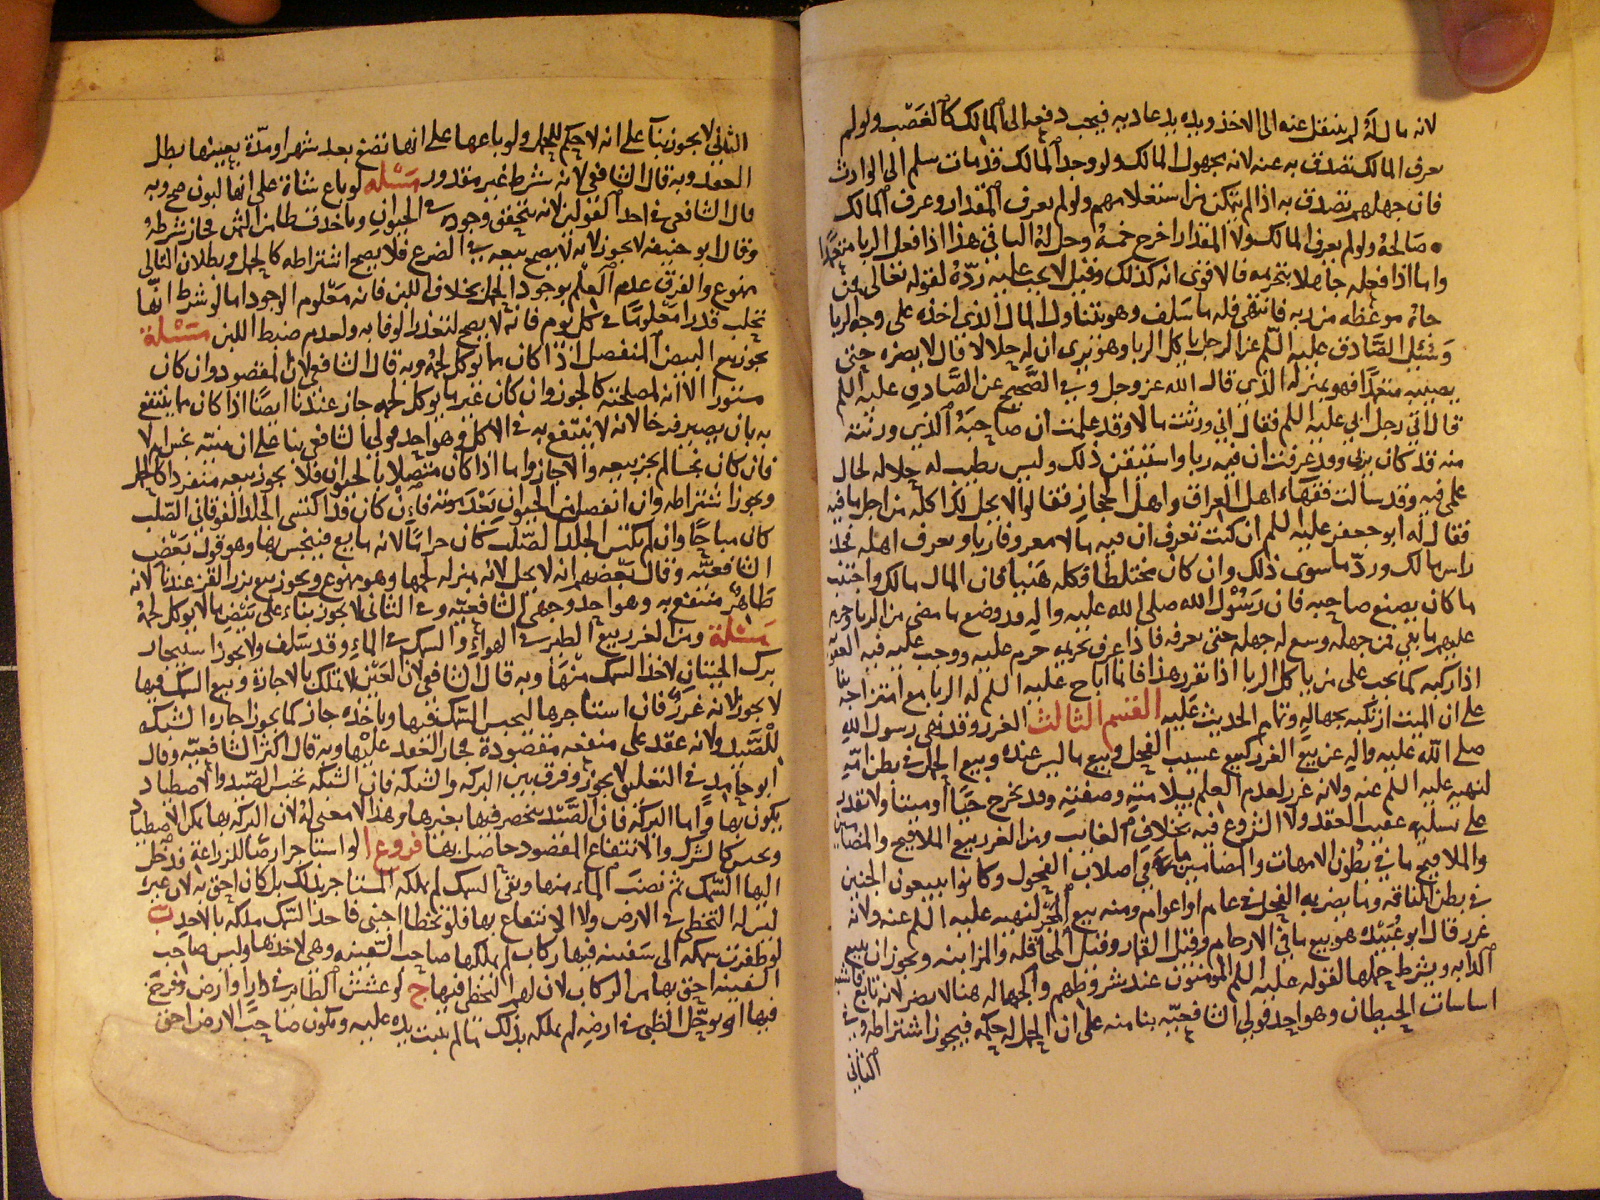 لانه مال له لم ينتقل عنه الى الاخذ ويده يد عادية فيجب دفعه الى المالك كالغصب ولو لم
يعرف المالك تصدق به عنه لانه مجهول المالك ولو وجد المالك قد مات سلم الى الوارث
فان جهلهم تصدق به اذا لم يتمكن من استعلامهم ولو لم يعرف المقدار وعرف المالك
صالحه ولو لم يعرف المالك ولا المقدار اخرج خمسه وحل له الباقي هذا اذا فعل الربا متعمدا
واما اذا فعله جاهلا بتحريمه فالاقوى انه كذلك وقيل لا يجب عليه ردّه لقوله تعالى فمن
جاءه موعظة من ربه فانتهى فله ما سلف وهو يتناول المال الذي اخذه على وجه الربا
وسئل الصادق عليه السلم عن الرجل ياكل الربا وهو يرى ان له حلالا قال لا يضره حتى
يصيبه متعمدا فهو بمنزلة الذي قال الله عز وجل وفي الصحيح عن الصادق عليه السلم
قال اتى رجل ابي عليه السلم فقال اني ورثت مالا وقد علمت ان صاحبه الذي ورثته
منه قد كان يربي وقد عرفت ان فيه ربا واستيقن ذلك وليس يطيب له حلاله لحال
علمي فيه وقد سالت فقهاء اهل العراق واهل الحجاز فقالوا لا يحل لك اكله من اجل ما فيه
فقال له ابو جعفر عليه السلم ان كنت تعرف ان فيه مالا معروفا ربا وتعرف اهله فخذ
راس مالك وردّ ما سوى ذلك وان كان مختلطا فكله هنيئا فان المال مالك واجتنب
ما كان يصنع صاحبه فان رسول الله صلى الله عليه واله قد وضع ما مضى من الربا وحرم
عليهم ما بقي فمن جهله وسع له جهله حتى يعرفه فاذا عرف تحريمه حرم عليه ووجب عليه فيه العقوبة
اذا ركبه كما يجب على من ياكل الربا اذا تقرر هذا فانما اباح عليه السلم له الربا مع امتزاجه
على ان الميت ارتكبه بجهالة وتمام الحديث عليه القسم الثالث الغرر وقد نهى رسول الله
صلى الله عليه واله عن بيع الغرر كبيع عسيب الفحل وبيع ما ليس عنده وبيع الحمل في بطن امّه
لنهيه عليه السلم عنه ولانه غرر لعدم العلم بسلامته وصفته وقد يخرج حيّا او ميتا ولا تقدر
على تسليمه عقيب العقد ولا الشروع فيه بخلاف الغائب ومن الغرر بيع الملاقيح والمضامين
والملاقيح ما في بطون الامهات والمضامين ما في اصلاب الفحول وكانوا يبيعون الجنين
في بطن الناقة وما يضربه الفحل في عام او اعوام ومنه بيع المجر لنهيه عليه السلم عنه ولانه
غرر قال ابو عبيدة هو بيع ما في الارحام وقيل القمار وقيل المحاقلة والمزابنة ويجوز ان يبيع
الدابة ويشترط حملها لقوله عليه السلم المؤمنون عند شروطهم والجهالة هنا لا يضر لانه تابع فاشبه
اساسات الحيطان وهو احد قولي الشافعيّة بنا منه على ان الحمل له حكم فيجوز اشتراطه وفي
الثاني
الثاني لا يجوز بنآ على انه لا حكم للحمل ولو باعها على انها تضع بعد شهر او مدّة يعينها بطل
العقد وبه قال الشافعي لانه شرط غير مقدور مسئلة لو باع شاة على انها لبون صح وبه
قال الشافعي في احد القولين لانه يتحقق وجوده في الحيوان وياخذ قسطا من الثمن فجاز شرطه
وقال ابو حنيفة لا يجوز لانه لا يصح بيعه في الضرع فلا يصح اشتراطه كالحمل وبطلان التالي
ممنوع والفرق عدم العلم بوجود الحمل بخلاف اللبن فانه معلوم الوجود اما لو شرط انها
تحلب قدرا معلوما في كل يوم فانه لا يصح لتعذر الوفا به ولعدم ضبط اللبن مسئلة
يجوز بيع البيض المنفصل اذا كان ما يوكل لحمه وبه قال الشافعي لانه المقصود وان كان
مستورا الا انه لمصلحته كالجوز وان كان غير ما يوكل لحمه جاز عندنا ايضا اذا كان ما ينتفع
به بان يصير فرخا لانه لا ينتفع به في الاكل وهو احد قولي الشافعي بنا على ان منيه نجس ام لا
فان كان نجسا لم يجز بيعه والا جاز واما اذا كان متصلا بالحيوان فلا يجوز بيعه منفردا كالحمل
ويجوز اشتراطه وان انفصل من الحيوان بعد موته فان كان قد اكتسى الجلد الفوقاني الصلب
كان مباحا وان لم يكتس الجلد الصلب كان حراما لانه مايع فينجس بها وهو قول بعض
الشافعيّة وقال بعضهم انه لا يحل لانه بمنزلة لحمها وهو ممنوع ويجوز بيع بزر القز عندنا لانه
طاهر منتفع به وهو احد وجهي الشافعيّة وفي الثاني لا يجوز بناء على بيض ما لا يوكل لحمه
مسئلة ومن الغرر بيع الطير في الهواء والسمك في الماء وقد سلف ولا يجوز استيجار
برك الحيتان لاخذ السمك منها وبه قال الشافعي لان العين لا تملك بالاجارة وبيع السمك فيها
لا يجوز لانه غرر فان استاجرها ليحبس السمك فيها وياخذه جاز كما يجوز اجارة الشبكة
للصيد ولانه عقد على منفعة مقصودة فجاز العقد عليها وبه قال اكثر الشافعيّة وقال
ابو حامد في التعليق لا يجوز وفرق بين البركة والشبكة فان الشبكة تحبس الصيد والاصطياد
يكون بها واما البركة فان الصيد ينحصر فيها بغيرها وهذا لا معنى له لان البركة بها يمكن الاصطياد
ويحبس كالشرك والانتفاع المقصود حاصل بها فروع ا لو استاجر ارضا للزراعة فدخل
اليها السمك ثم نضب الماء منها وبقي السمك لم يملكه المستاجر بذلك بل كان احق به لان غيره
ليس له التخطي في الارض ولا الانتفاع بها فلو تخطا اجنبي فاخذ السمك ملكه بالاخذ ب
لو طفرت سمكة الى سفينة فيها ركاب لم يملكها صاحب السفينة وهي لاخذها وليس صاحب
السفينة احق بها من الركاب لان لهم التخطي فيها ج لو عشش الطاير في داره او ارضه وفرخ
فيها او توحّل الظبي في ارضه لم يملكه بذلك ما لم تثبت يده عليه ويكون صاحب الارض احق